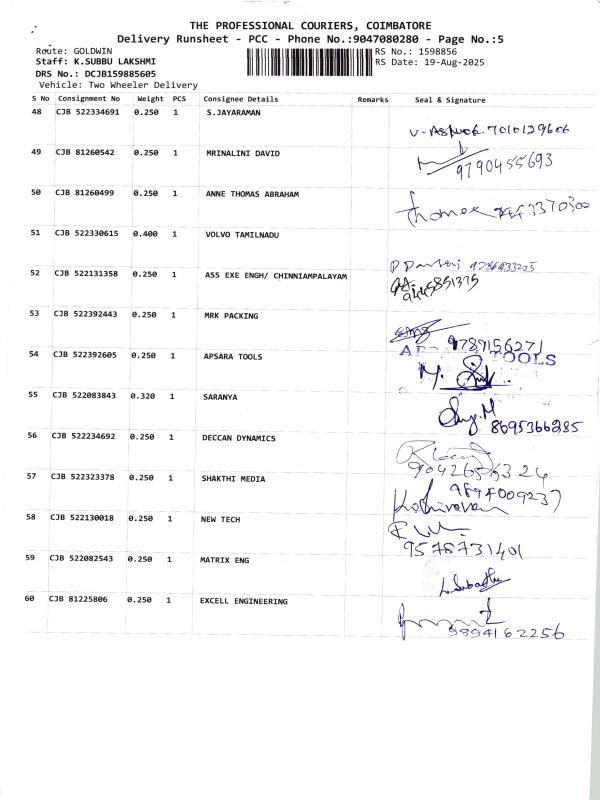 THE PROFESSIONAL COURIERS, COIMBATORE
Delivery Runsheet - PCC - Phone No.:9047080280 - Page No.:5
Route: GOLDWIN RS No.: 1598856
Staff: K.SUBBU LAKSHMI RS Date: 19-Aug-2025
DRS No.: DCJB159885605
Vehicle: Two Wheeler Delivery
S No Consignment No Weight PCS Consignee Details Remarks Seal & Signature
48 CJB 522334691 0.250 1 S.JAYARAMAN
V. Ashok 7010129606
49 CJB 81260542 0.250 1 MRINALINI DAVID
9790455693
50 CJB 81260499 0.250 1 ANNE THOMAS ABRAHAM
Thomas
51 CJB 522330615 0.400 1 VOLVO TAMILNADU
52 CJB 522131358 0.250 1 ASS EXE ENGH/ CHINNIAMPALAYAM
9445851375
53 CJB 522392443 0.250 1 MRK PACKING
9789156271
54 CJB 522392605 0.250 1 APSARA TOOLS
TOOLS
M.
55 CJB 522083843 0.320 1 SARANYA
8695366285
56 CJB 522234692 0.250 1 DECCAN DYNAMICS
57 CJB 522323378 0.250 1 SHAKTHI MEDIA
9894009237
Kathiravan
58 CJB 522130018 0.250 1 NEW TECH
9578731401
59 CJB 522082543 0.250 1 MATRIX ENG
60 CJB 81225806 0.250 1 EXCELL ENGINEERING
9894162256